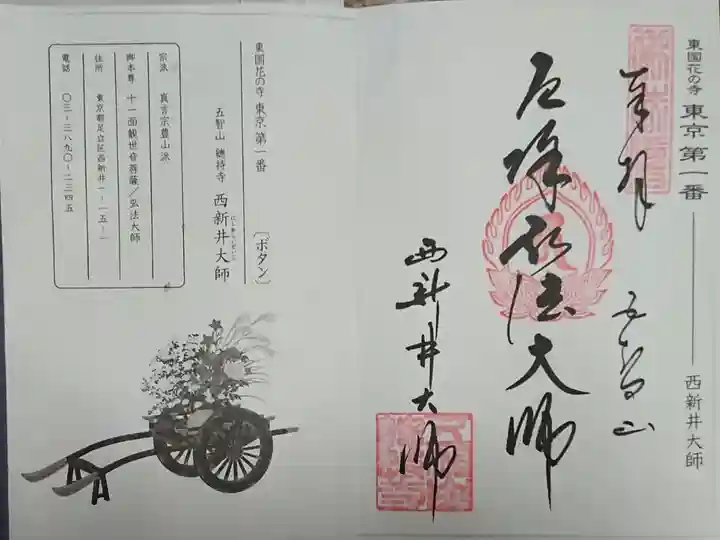 東国花の寺 東京 第一番
西新井大師
奉拝
五智山
厄除弘法大師
西新井大師
東国花の寺 東京 第一番
〔ボタン〕
五智山 總持寺 西新井大師
にしあらいだいし
宗派 真言宗豊山派
御本尊 十一面観世音菩薩／弘法大師
住所 東京都足立区西新井一-一五-一
電話 〇三-三八九〇-二三四五